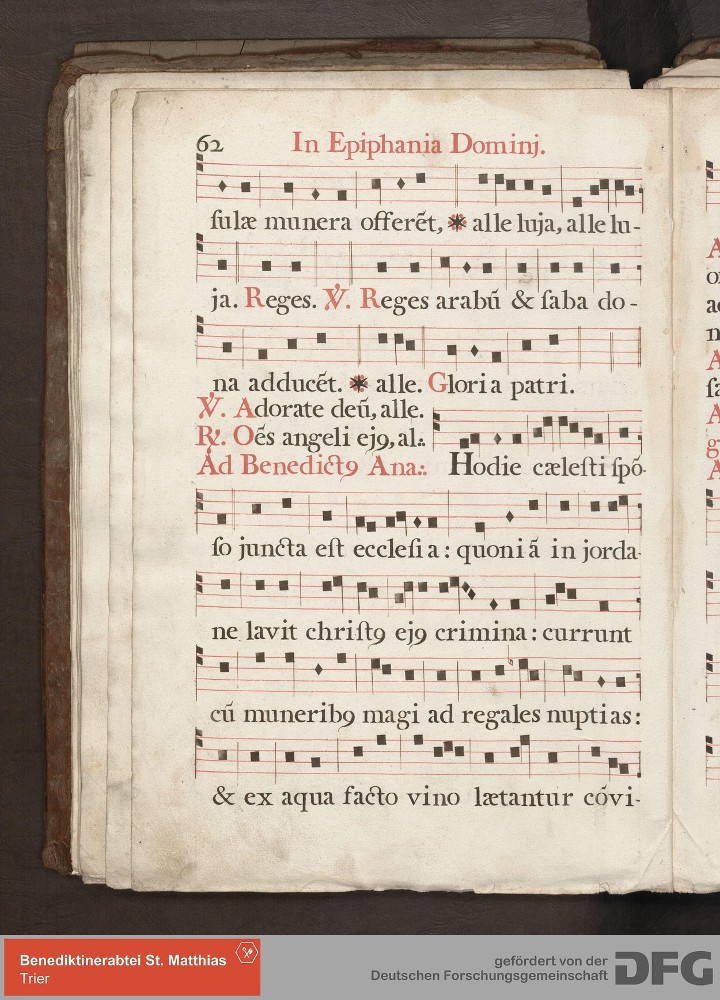 62 In Epiphania Dominj.
ſulæ munera offerẽt, ✷ alle luja, alle lu-
ja. Reges. ℣. Reges arabũ & ſaba do-
na adducẽt. ✷ alle. Gloria patri.
℣. Adorate deũ, alle.
℟. Oẽs angeli ejꝯ, al.:
Ad Benedictꝯ Ana.: Hodie cæleſti ſpõ-
ſo juncta eſt eccleſia: quoniã in jorda-
ne lavit chriſtꝯ ejꝯ crimina: currunt
cũ muneribꝯ magi ad regales nuptias:
& ex aqua facto vino lætantur cõvi-
Benediktinerabtei St. Matthias
Trier
gefördert von der
Deutschen Forschungsgemeinschaft DFG